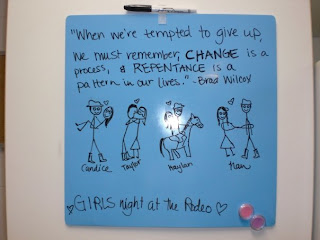 "When we're tempted to give up,
we must remember, CHANGE is a
process, & REPENTANCE is a
pattern in our lives." -Brad Wilcox
Candice Taylor Kaylan Han
GIRLS night at the Rodeo